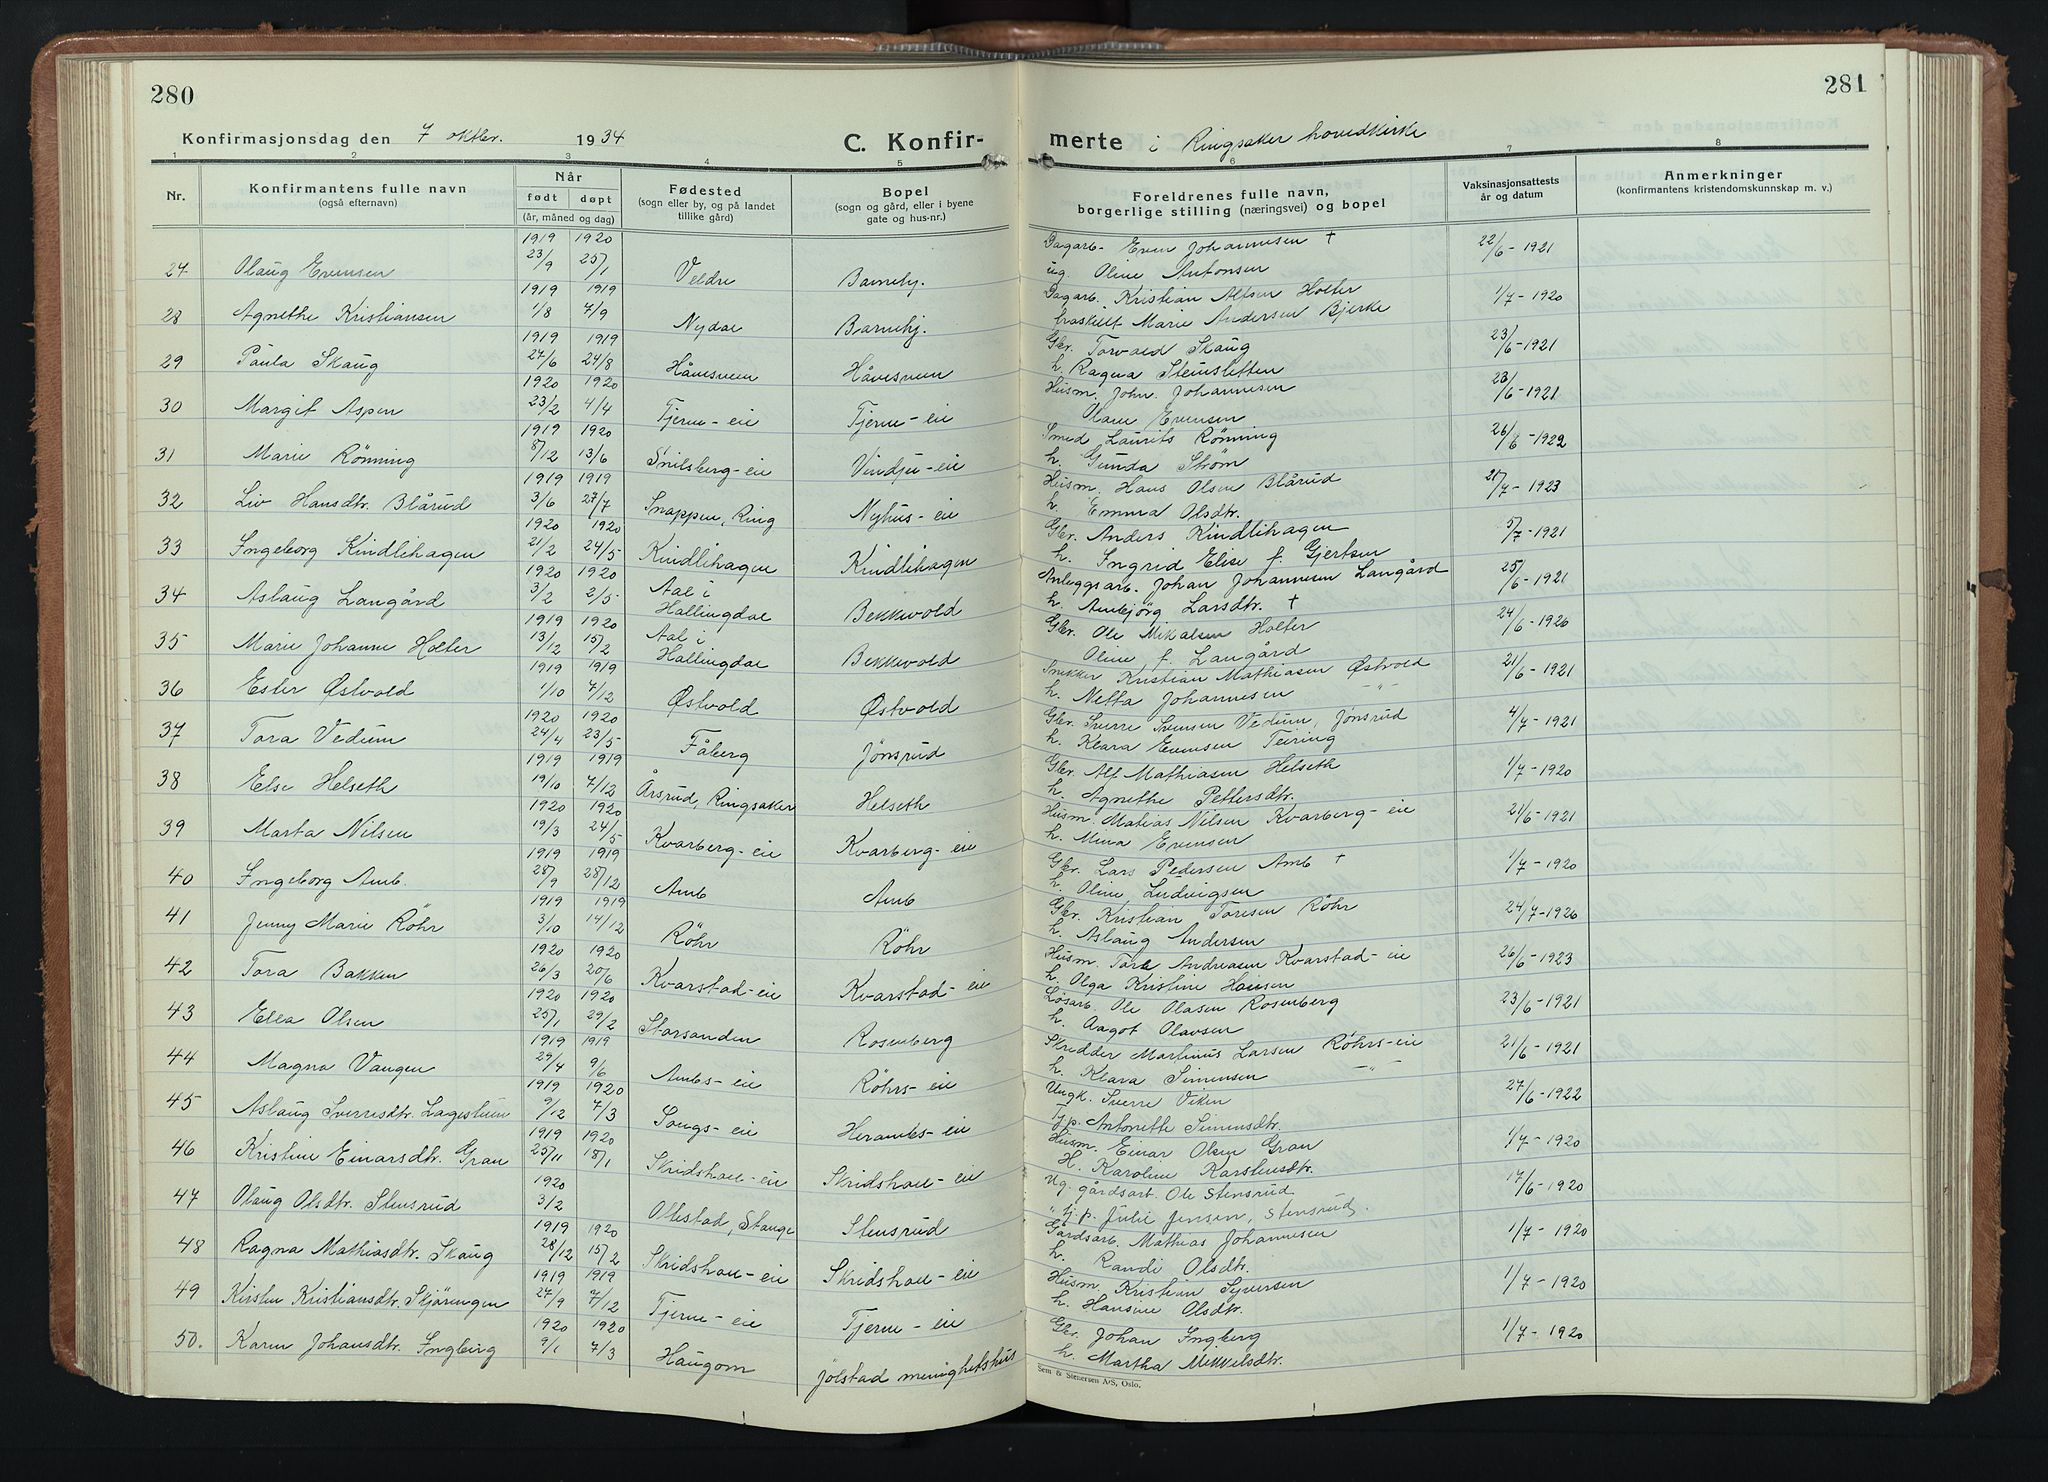 280
281
Konfirmasjonsdag den 7 oktbr. 1934
C. Konfir-
merte i Ringsaker hovedkirke
1 2 3 4 5 6 7 8
Nr.
Konfirmantens fulle navn
(også efternavn)
Når
født døpt
(år, måned og dag)
Fødested
(sogn eller by, og på landet
tillike gård)
Bopel
(sogn og gård, eller i byene
gate og hus-nr.)
Foreldrenes fulle navn,
borgerlige stilling (næringsvei) og bopel
Vaksinasjonsattests
år og datum
Anmerkninger
(konfirmantens kristendomskunnskap m. v.)
1919 1920 Dagarb. Even Johannesen †
27 Olaug Evensen 23/9 25/1 Veldre Barnehj. ug. Oline Antonsen 22/6-1921
1919 1919 Dagarb. Kristian Alfsen Holter
28 Agnethe Kristiansen 1/8 7/9 Nydal Barnehj. fraskilt Marie Andersen Bjerke 1/7-1920
1919 1919 Gbr. Torvald Skaug
29 Paula Skaug 27/6 24/8 Håvesveen Håvesveen h. Ragna Steinsletten 23/6-1921
1920 1920 Husm. John. Johannesen
30 Margit Aspen 23/2 4/4 Tjerne-eie Tjerne-eie Olave Evensen 23/6-1921
1919 1920 Smed Laurits Rönning
31 Marie Rönning 8/12 13/6 Snilsberg-eie Vindju-eie h. Gunda Strøm 26/6-1922
1919 1919 Husm. Hans Olsen Blårud
32 Liv Hansdtr. Blårud 3/6 27/7 Snappen, Ring Nyhus-eie h. Emma Olsdtr. 21/7-1923
1920 1920 Gbr. Anders Kindlihagen
33 Ingeborg Kindlihagen 21/2 24/5 Kindlihagen Kindlihagen h. Ingrid Elise f. Gjertsen 5/7-1921
1920 1920 Anleggsarb. Johan Johannesen Langård
34 Aslaug Langård 3/2 2/5 Aal i Hallingdal Bekkevold h. Ambjørg Larsdtr. † 25/6-1921
1919 1920 Gbr. Ole Mikalsen Holter
35 Marie Johanne Holter 13/12 15/2 Aal i Hallingdal Bekkevold Oline f. Langård 24/6-1926
1919 1919 Snekker Kristian Mathiasen Østvold
36 Ester Østvold 1/10 7/12 Østvold Østvold h. Netta Johannesen -"- 21/6-1921
1920 1920 Gbr. Sverre Svensen Vedum, Jönsrud
37 Tora Vedum 24/4 23/5 Fåberg Jönsrud h. Klara Evensen Teiring 4/7-1921
1919 1919 Gbr. Alf Mathiasen Helseth
38 Else Helseth 19/10 7/12 Årsrud, Ringsaker Helseth h. Agnethe Pettersdtr. 1/7-1920
1920 1920 Husm. Mathias Nilsen Kvarberg-eie
39 Marta Nilsen 19/3 24/5 Kvarberg-eie Kvarberg-eie h. Mina Evensen 21/6-1921
1919 1919 Gbr. Lars Pedersen Amb †
40 Ingeborg Amb. 28/9 28/12 Amb Amb h. Oline Ludvigsen 1/7-1920
1919 1919 Gbr. Kristian Toresen Röhr
41 Jenny Marie Röhr 3/10 14/12 Röhr Röhr h. Aslaug Andersen 24/7-1926
1920 1920 Husm. Tore Andreasen Kvarstad-eie
42 Tora Bakken 26/3 20/6 Kvarstad-eie Kvarstad-eie h. Olga Kristine Hansen 26/6-1923
1920 1920 Løsarb. Ole Olasen Rosenberg
43 Ella Olsen 25/1 29/2 Storsanden Rosenberg h. Aagot Olavsen 23/6-1921
1919 1919 Skredder Martinus Larsen Röhrs-eie
44 Magna Vangen 29/4 9/6 Ambs-eie Röhrs-eie h. Klara Simensen -"- 21/6-1921
1919 1920 Ungk. Sverre Viken
45 Aslaug Sverresdtr. Lageshuen 9/12 7/3 Songs-eie Herambs-eie Tj.p. Antonethe Simensdtr. 27/6-1922
1919 1920 Husm. Einar Olsen Gran
46 Kristine Einarsdtr. Gran 25/11 18/1 Skridshoel-eie Skridshoel-eie H. Karoline Karstensdtr. 1/7-1920
1920 Ug. gårdsarb. Ole Stensrud
47 Olaug Olsdtr. Stensrud 3/2 Ottestad, Stange Stensrud " tj.p. Julie Jensen, Stensrud. 17/6-1920
1919 1920 Gårdsarb. Mathias Johannesen
48 Ragna Mathiasdtr. Skaug 28/12 15/2 Skridshoel-eie Skridshoel-eie h. Randi Olsdtr. 1/7-1920
1919 1919 Husm. Kristian Syversen
49 Kirsten Kristiansdtr. Skjärengen 27/9 7/12 Tjerne-eie Tjerne-eie h. Hansine Olsdtr. 1/7-1920
1920 1920 Gbr. Johan Ingberg
50. Karen Johansdtr. Ingberg 9/1 7/3 Haugom Jölstad menighetshus h. Martha Mikkelsdtr. 1/7-1920
Sem & Stenersen A/S, Oslo.